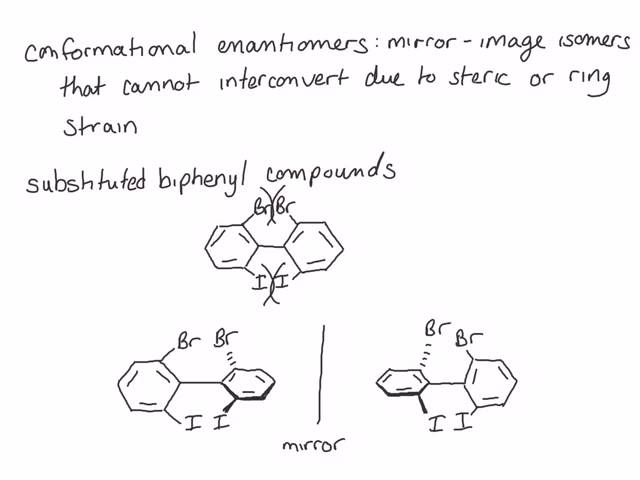 conformational enantiomers: mirror-image isomers
that cannot interconvert due to steric or ring
strain
substituted biphenyl compounds
Br Br
I I
Br Br Br Br
I I I I
mirror